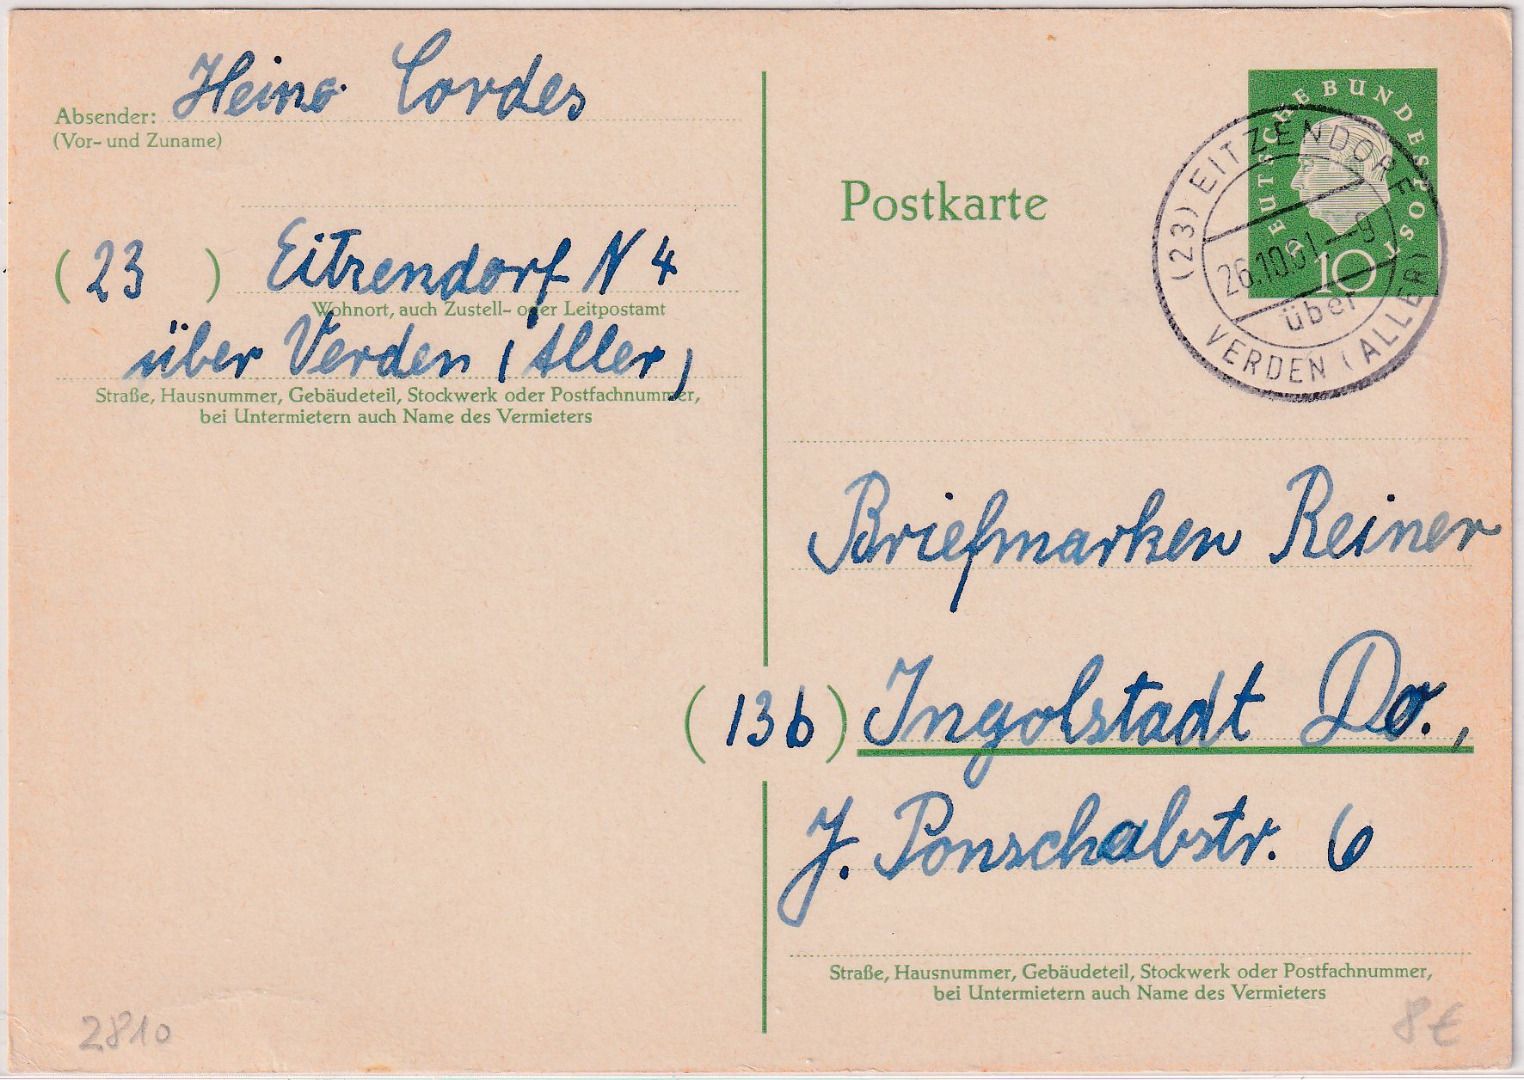 Absender: Heino Cordes
(Vor- und Zuname)
(23) Eitzendorf N 4
Wohnort, auch Zustell- oder Leitpostamt
über Verden (Aller)
Straße, Hausnummer, Gebäudeteil, Stockwerk oder Postfachnummer,
bei Untermietern auch Name des Vermieters
2810
Postkarte
DEUTSCHE BUNDESPOST
10
(23) EITZENDORF
26.10.61-9
über
VERDEN (ALLER)
Briefmarken Reiner
(13b) Ingolstadt Do.,
J. Ponschabstr. 6
Straße, Hausnummer, Gebäudeteil, Stockwerk oder Postfachnummer,
bei Untermietern auch Name des Vermieters
8€